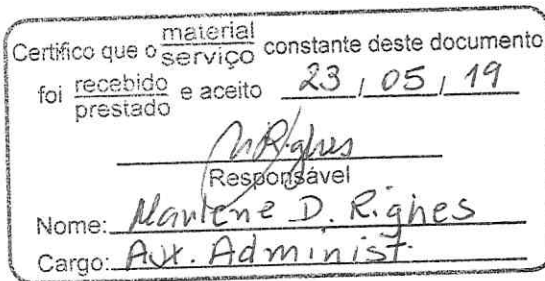 Certifico que o material
serviço constante deste documento
foi recebido
prestado e aceito 23 / 05 / 19
Righes
Responsável
Nome: Marlene D. Righes
Cargo: Aux. Administ.